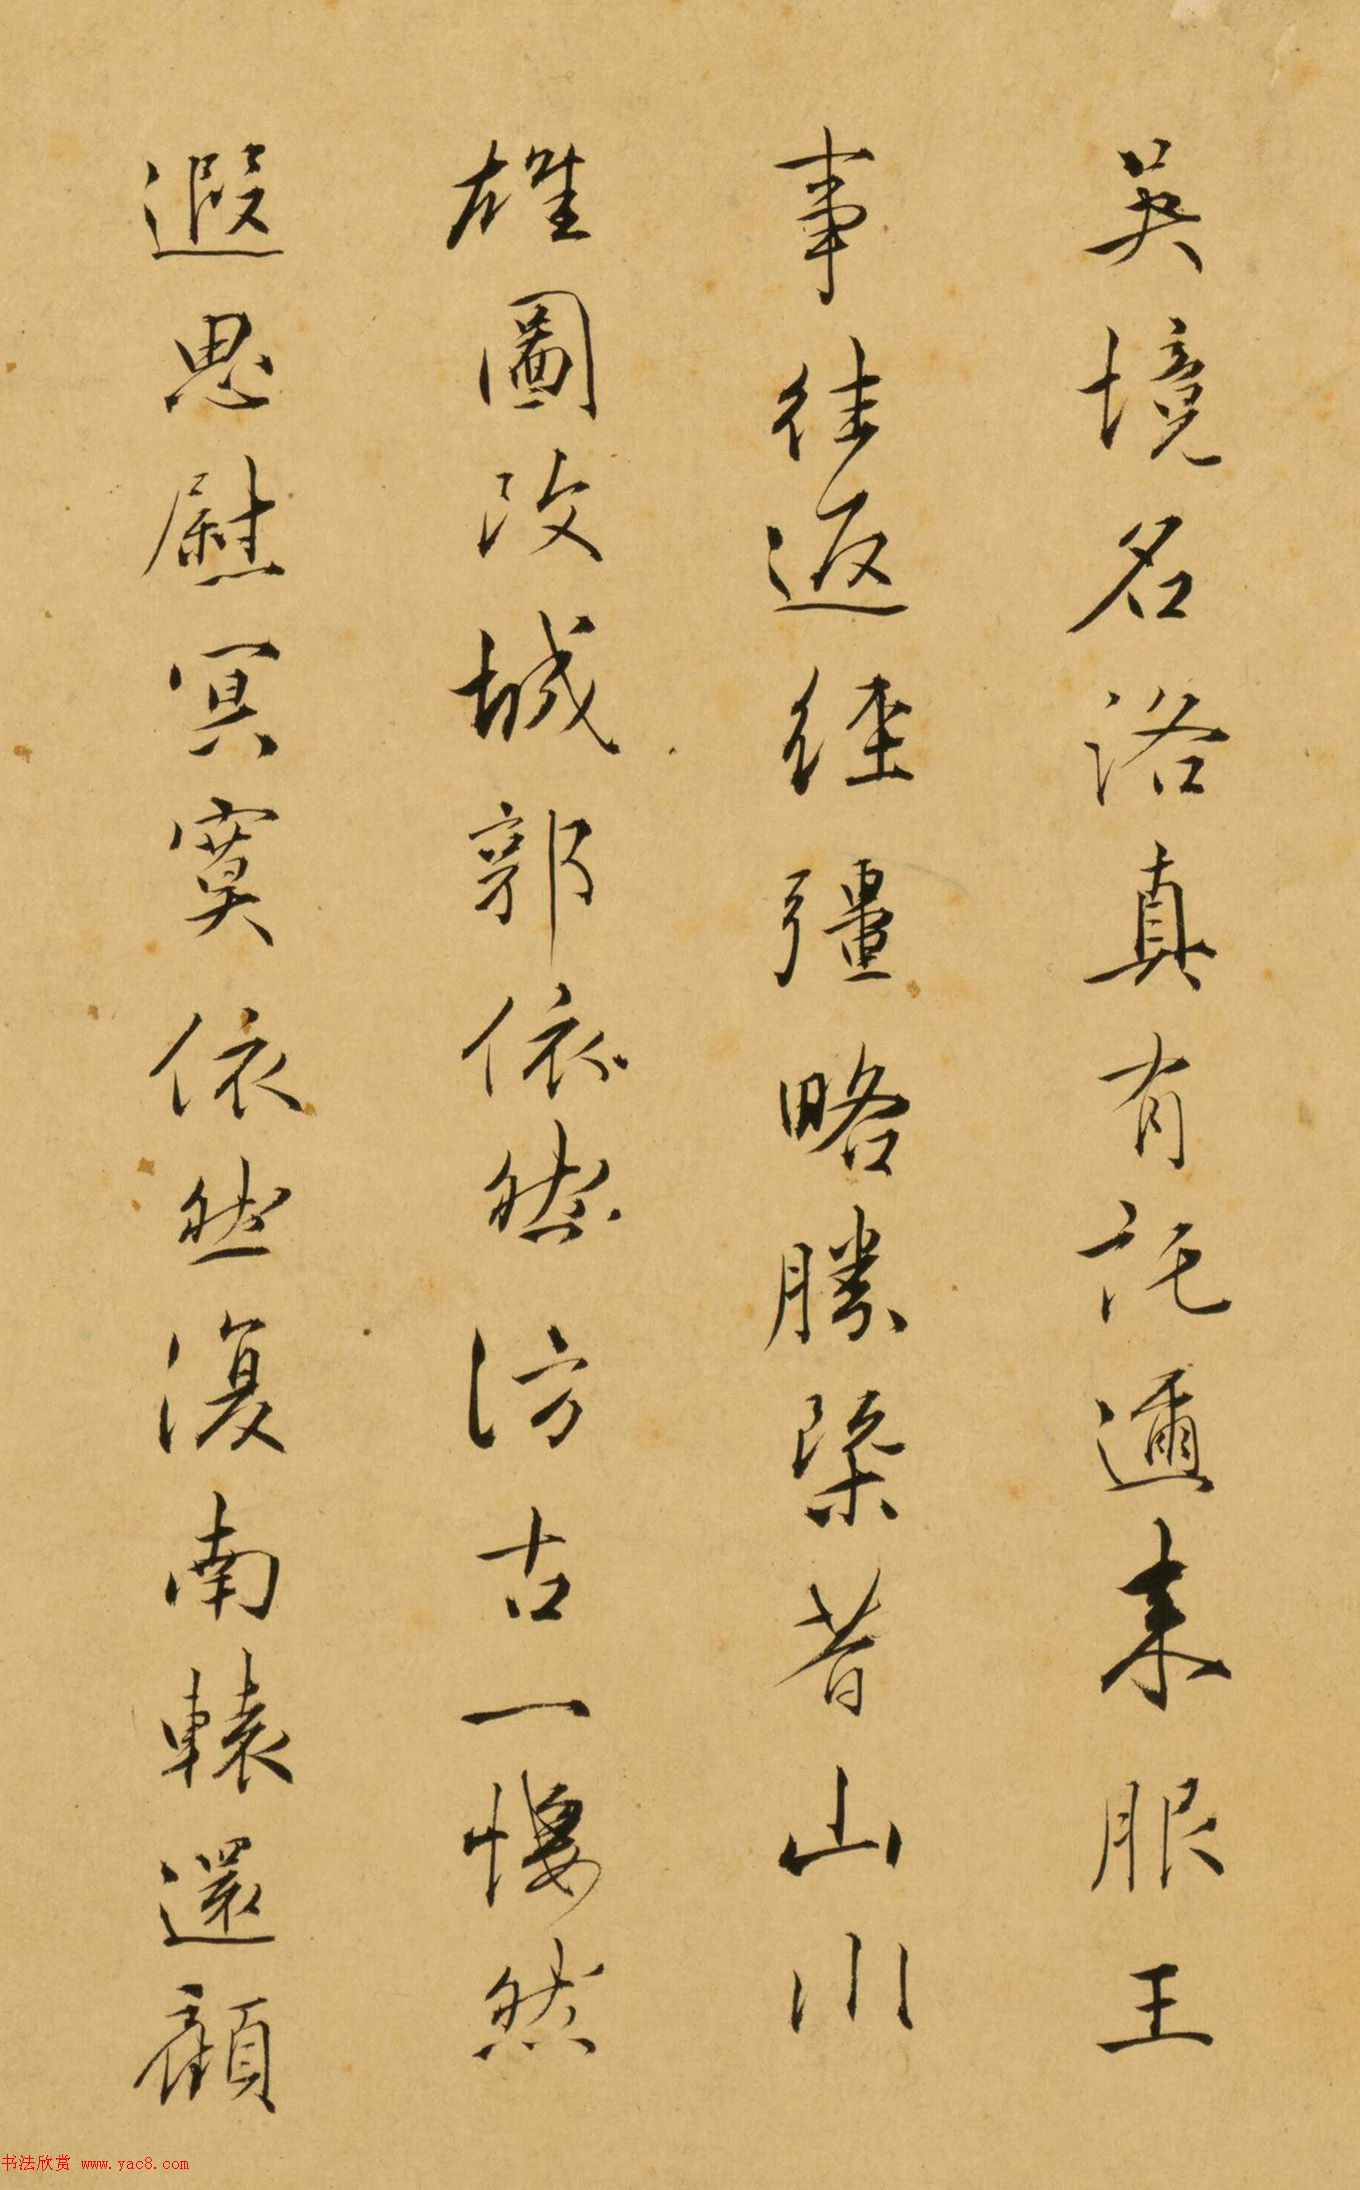 吴境名洛真有託邇来服王
事往返經疆略勝槩昔山川
雄圖改城郭依然訪古一悽然
遐思慰冥寞依然復南轅還顧
书法欣赏 www.yac8.com